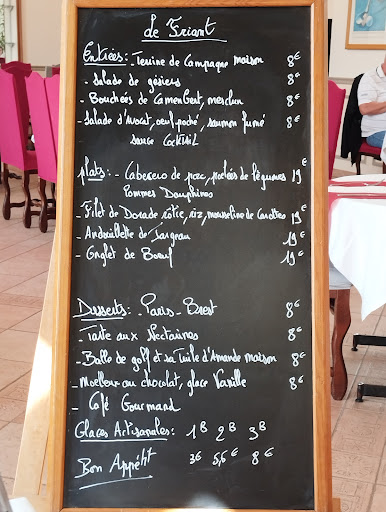 Le Friant
Entrées: - Terrine de Campagne maison 8€
- Salade de gésiers 8€
- Bouchées de Camembert, mesclun 8€
- Salade d'Avocat, oeuf poché, saumon fumé 8€
sauce Cocktail
Plats: - Cabecero de porc, poêlées de légumes 19€
Pommes Dauphines
- Filet de Dorade rôtie, riz, mousseline de Carottes 19€
- Andouillette de Jargeau 19€
- Onglet de Boeuf 19€
Desserts: - Paris-Brest 8€
- Tarte aux Nectarines 8€
- Balle de golf et sa Tuile d'Amande maison 8€
- Moelleux au chocolat, glace Vanille 8€
- Café Gourmand
Glaces Artisanales: 1B 2B 3B
Bon Appétit 3€ 5,6€ 8€